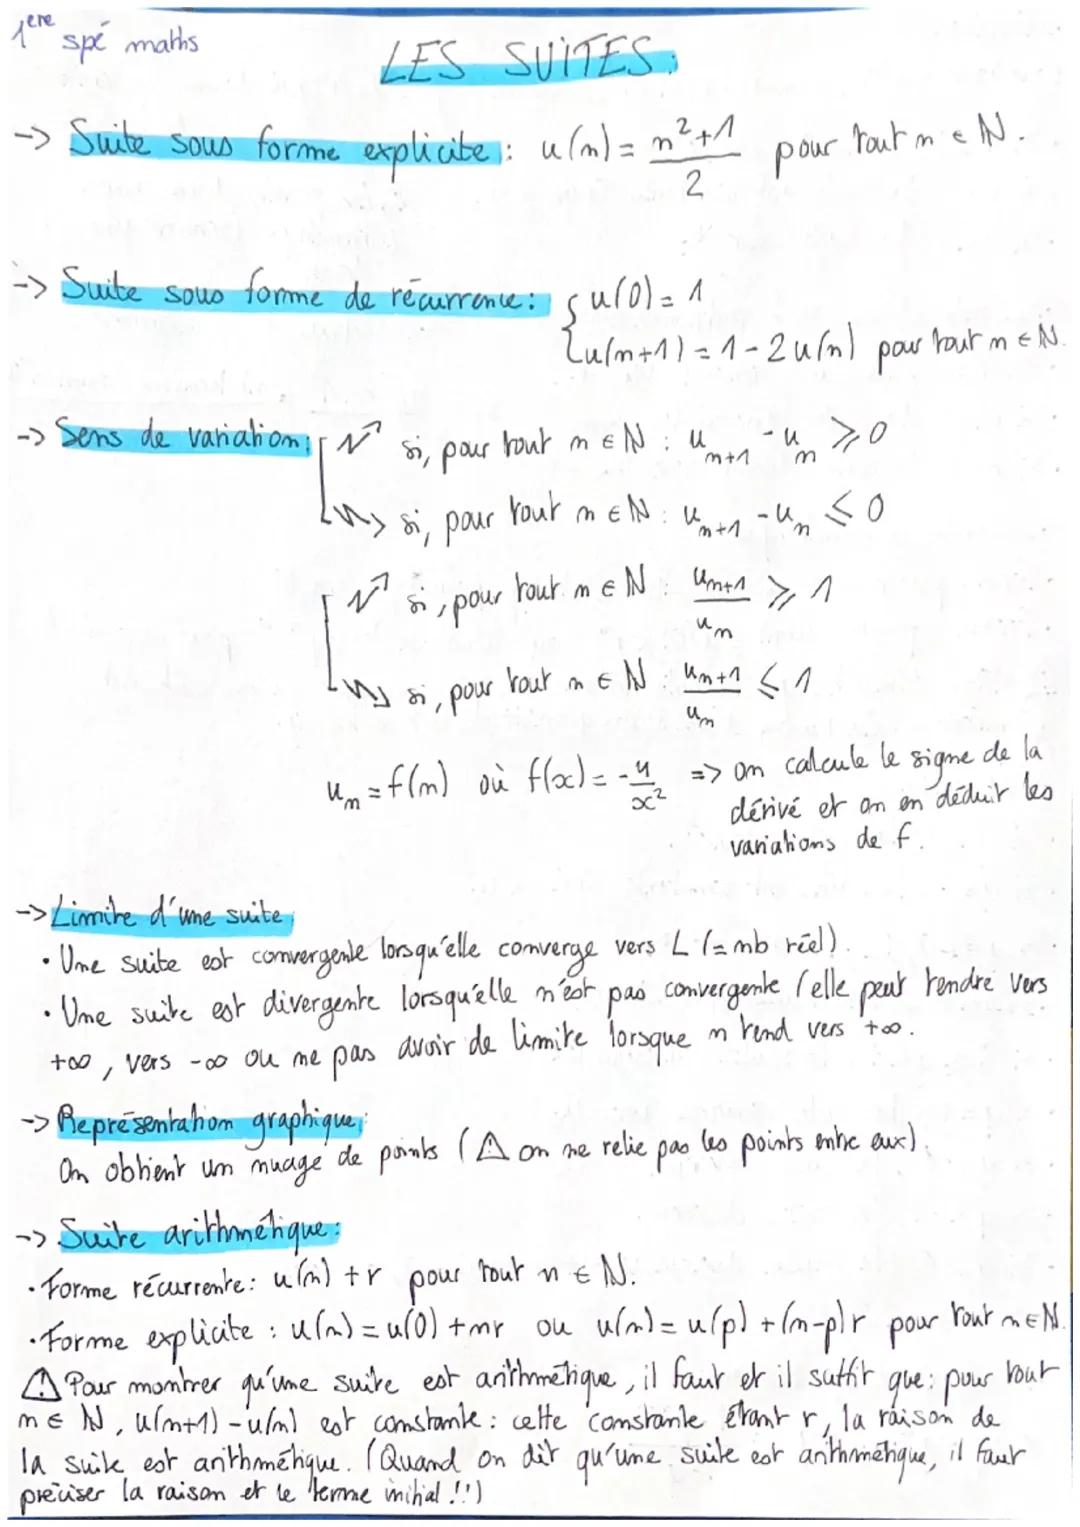 1ère spé maths
LES SUITES:
-> Suite sous forme explicite : u(n) = (n²+1)/2 pour tout n ∈ ℕ.
-> Suite sous forme de récurrence : { u(0) = 1
u(n+1) = 1 - 2u(n) pour tout n ∈ ℕ.
-> Sens de variation : ↗ si, pour tout n ∈ ℕ : uₙ₊₁ - uₙ ⩾ 0
↘ si, pour tout n ∈ ℕ : uₙ₊₁ - uₙ ⩽ 0
↗ si, pour tout n ∈ ℕ : uₙ₊₁/uₙ ⩾ 1
↘ si, pour tout n ∈ ℕ : uₙ₊₁/uₙ ⩽ 1
uₙ = f(n) où f(x) = -4/x² => on calcule le signe de la
dérivé et on en déduit les
variations de f.
-> Limite d'une suite :
• Une suite est convergente lorsqu'elle converge vers L (= nb réel).
• Une suite est divergente lorsqu'elle n'est pas convergente (elle peut tendre vers
+∞, vers -∞ ou ne pas avoir de limite lorsque n tend vers +∞.
-> Représentation graphique :
On obtient un nuage de points (⚠ on ne relie pas les points entre eux).
-> Suite arithmétique :
• Forme récurrente : u(n) + r pour tout n ∈ ℕ.
• Forme explicite : u(n) = u(0) + nr ou u(n) = u(p) + (n-p)r pour tout n ∈ ℕ.
⚠ Pour montrer qu'une suite est arithmétique, il faut et il suffit que : pour tout
n ∈ ℕ, u(n+1) - u(n) est constante : cette constante étant r, la raison de
la suite est arithmétique. (Quand on dit qu'une suite est arithmétique, il faut
préciser la raison et le terme initial !!)